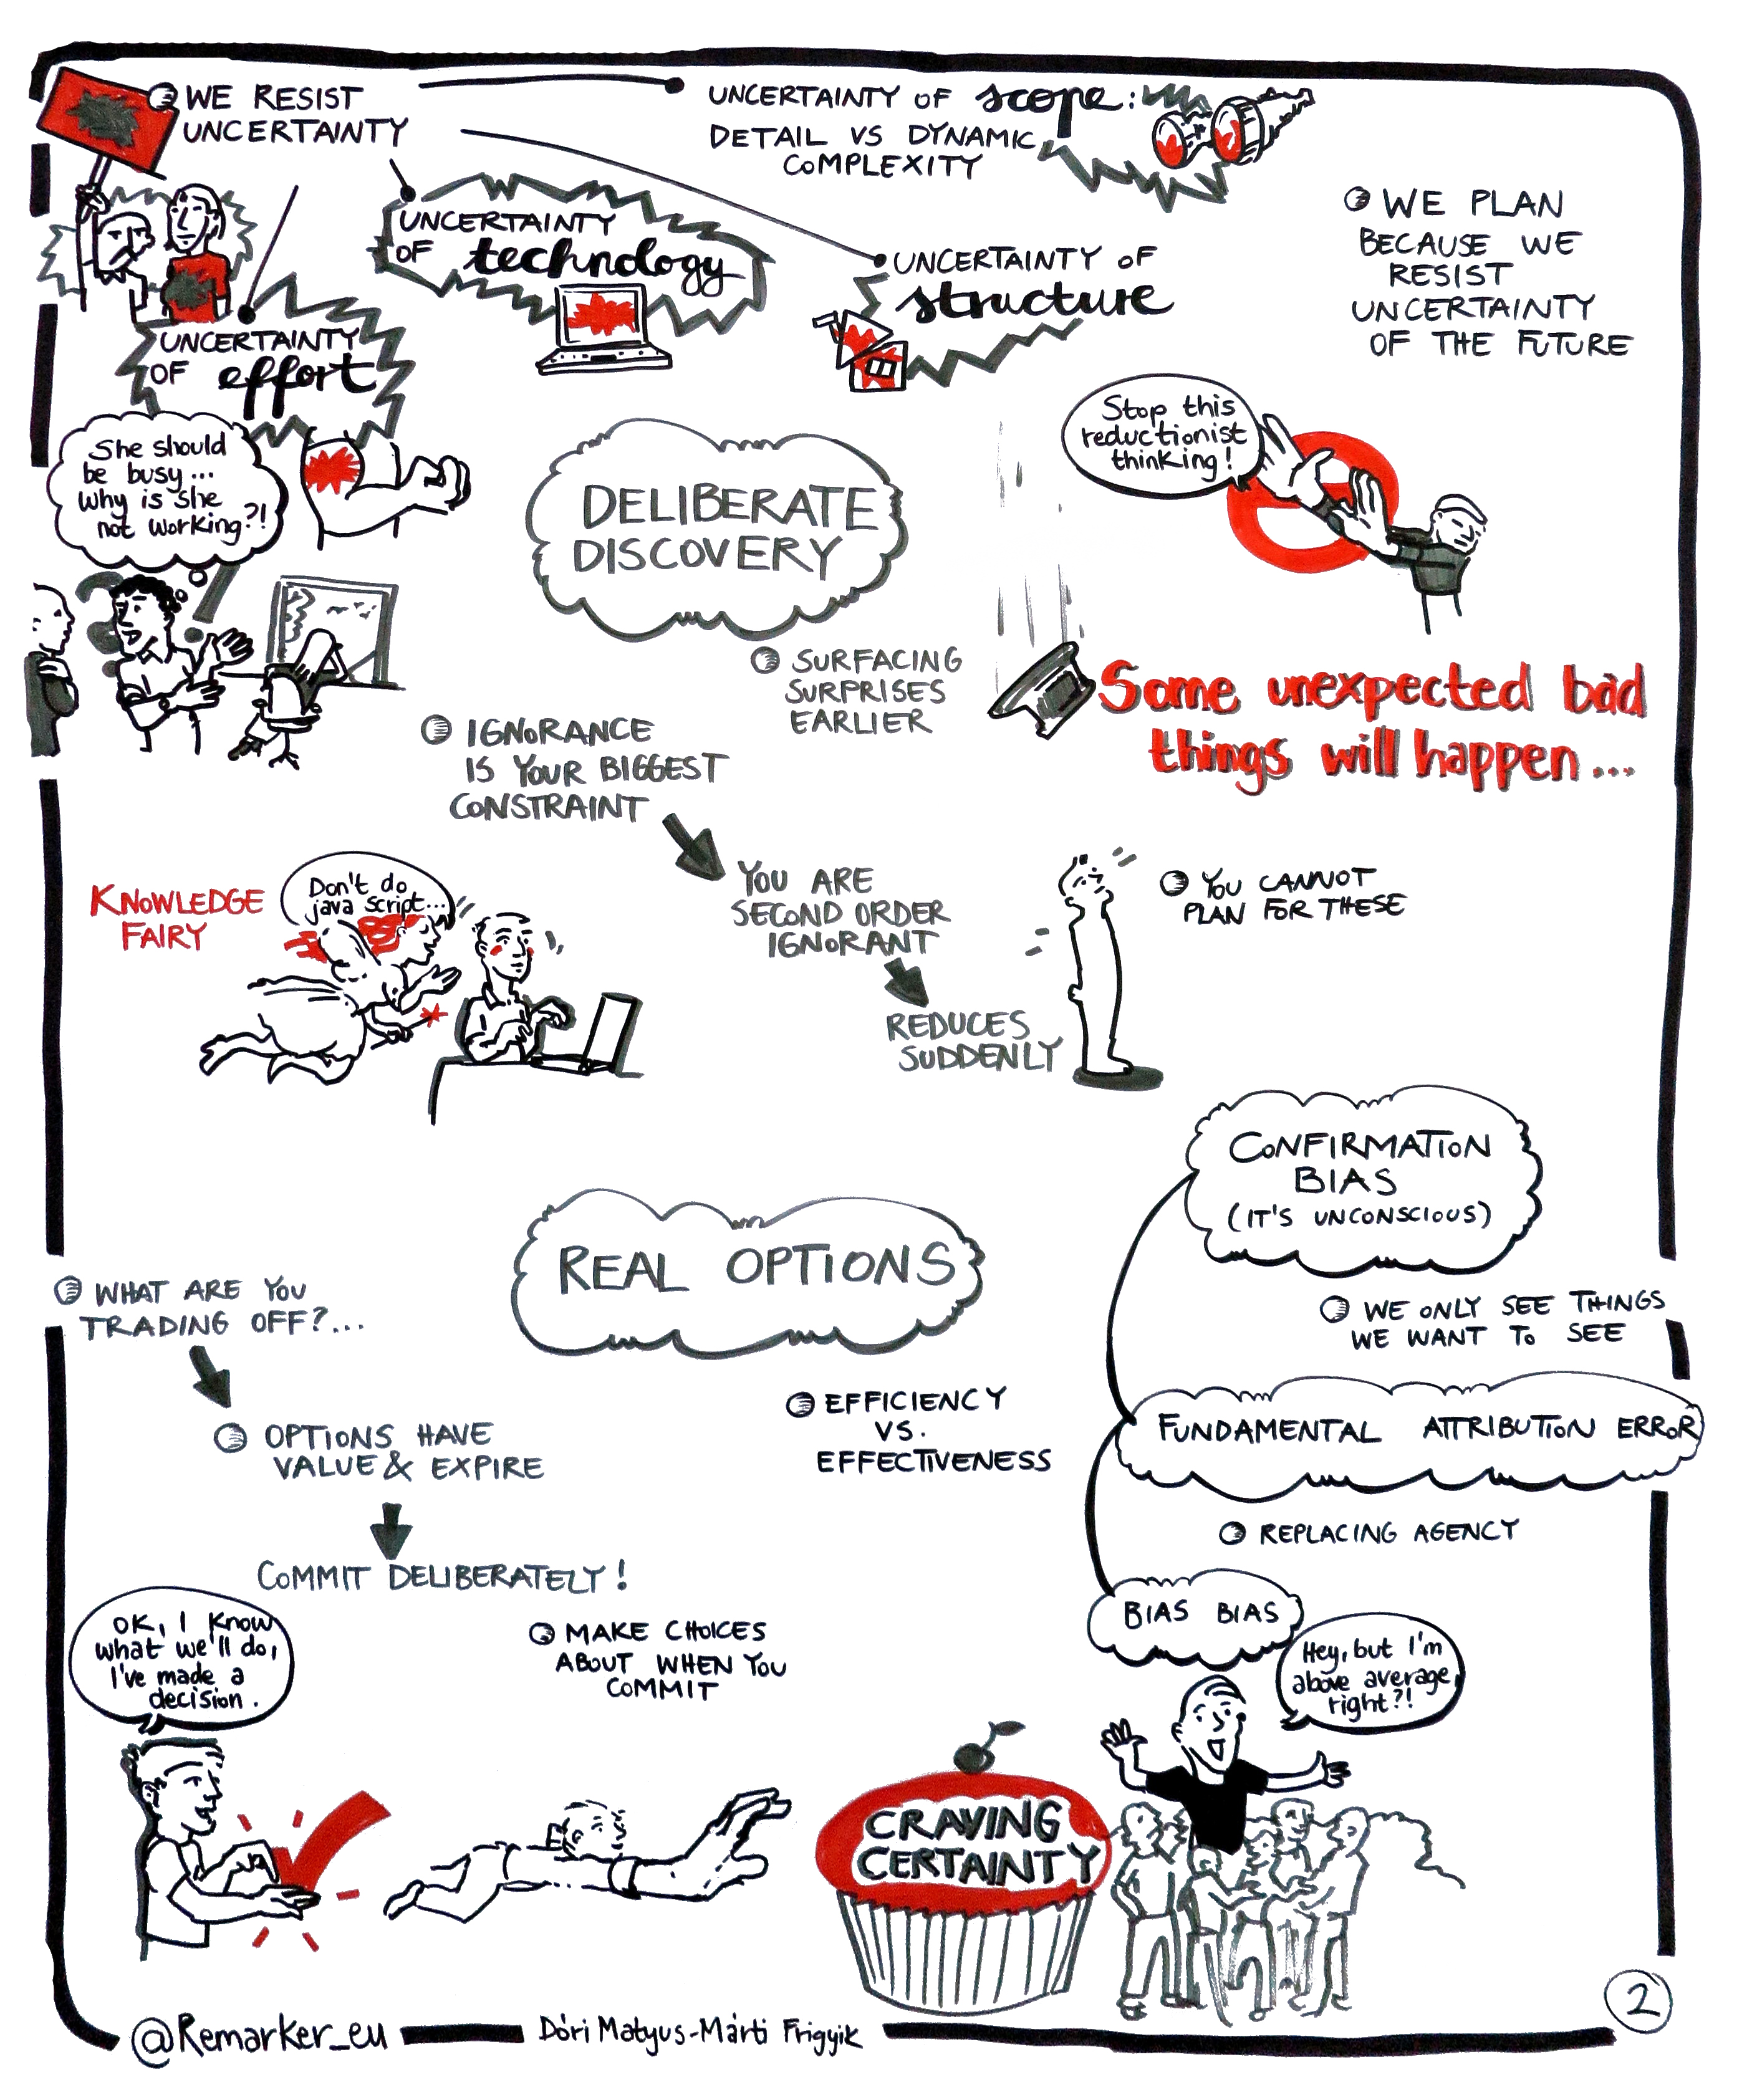 WE RESIST
UNCERTAINTY
UNCERTAINTY OF scope:
DETAIL VS DYNAMIC
COMPLEXITY
UNCERTAINTY
OF technology
UNCERTAINTY OF
structure
UNCERTAINTY
OF effort
WE PLAN
BECAUSE WE
RESIST
UNCERTAINTY
OF THE FUTURE
She should
be busy...
why is she
not working?!
DELIBERATE
DISCOVERY
Stop this
reductionist
thinking!
SURFACING
SURPRISES
EARLIER
Some unexpected bad
things will happen...
IGNORANCE
IS YOUR BIGGEST
CONSTRAINT
KNOWLEDGE
FAIRY
Don't do
java script...
YOU ARE
SECOND ORDER
IGNORANT
YOU CANNOT
PLAN FOR THESE
REDUCES
SUDDENLY
CONFIRMATION
BIAS
(IT'S UNCONSCIOUS)
REAL OPTIONS
WHAT ARE YOU
TRADING OFF?...
WE ONLY SEE THINGS
WE WANT TO SEE
EFFICIENCY
VS.
EFFECTIVENESS
FUNDAMENTAL ATTRIBUTION ERROR
OPTIONS HAVE
VALUE & EXPIRE
REPLACING AGENCY
COMMIT DELIBERATELY!
BIAS BIAS
OK, I know
what we'll do,
I've made a
decision.
MAKE CHOICES
ABOUT WHEN YOU
COMMIT
Hey, but I'm
above average,
right?!
CRAVING
CERTAINTY
2
@Remarker_eu
Dóri Matyus-Márti Frigyik